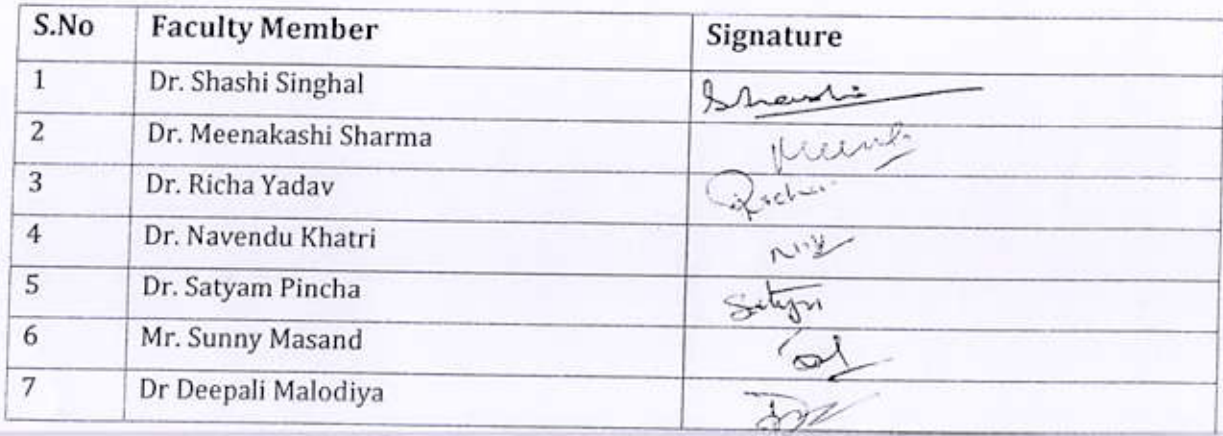 S.No Faculty Member Signature
1 Dr. Shashi Singhal Shashi
2 Dr. Meenakashi Sharma
3 Dr. Richa Yadav Richa
4 Dr. Navendu Khatri
5 Dr. Satyam Pincha Satyam
6 Mr. Sunny Masand
7 Dr Deepali Malodiya